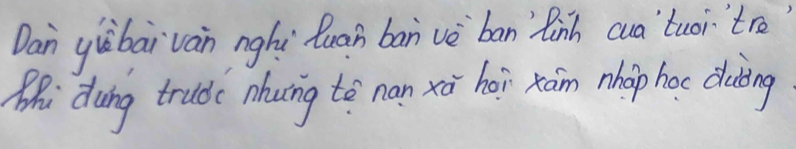 Dàn ý bài văn nghị luận bàn về bản lĩnh của tuổi trẻ
khi đứng trước những tệ nạn xã hội xâm nhập học đường.